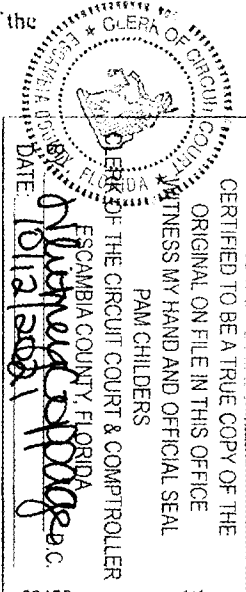 the
CLERK OF CIRCUIT COURT
ESCAMBIA COUNTY FLORIDA
CERTIFIED TO BE A TRUE COPY OF THE
ORIGINAL ON FILE IN THIS OFFICE
WITNESS MY HAND AND OFFICIAL SEAL
PAM CHILDERS
CLERK OF THE CIRCUIT COURT & COMPTROLLER
ESCAMBIA COUNTY, FLORIDA
D.C.
DATE: 10/12/2021